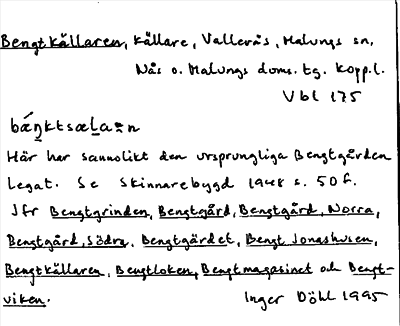 Bengtkällaren, källare, Vallerås, Malungs sn,
Nås o. Malungs doms. tg. Kopp.l.
Vbl 175
bæ̀ŋktsæLa:n
Här har sannolikt den ursprungliga Bengtgården
legat. Se Skinnarebygd 1948 s. 50 f.
Jfr Bengtgrinden, Bengtgård, Bengtgård, Norra,
Bengtgård, Södra, Bengtgärdet, Bengt Jonashusen,
Bengtkällaren, Bengtloken, Bengtmagasinet och Bengt-
viken.
Inger Döhl 1995